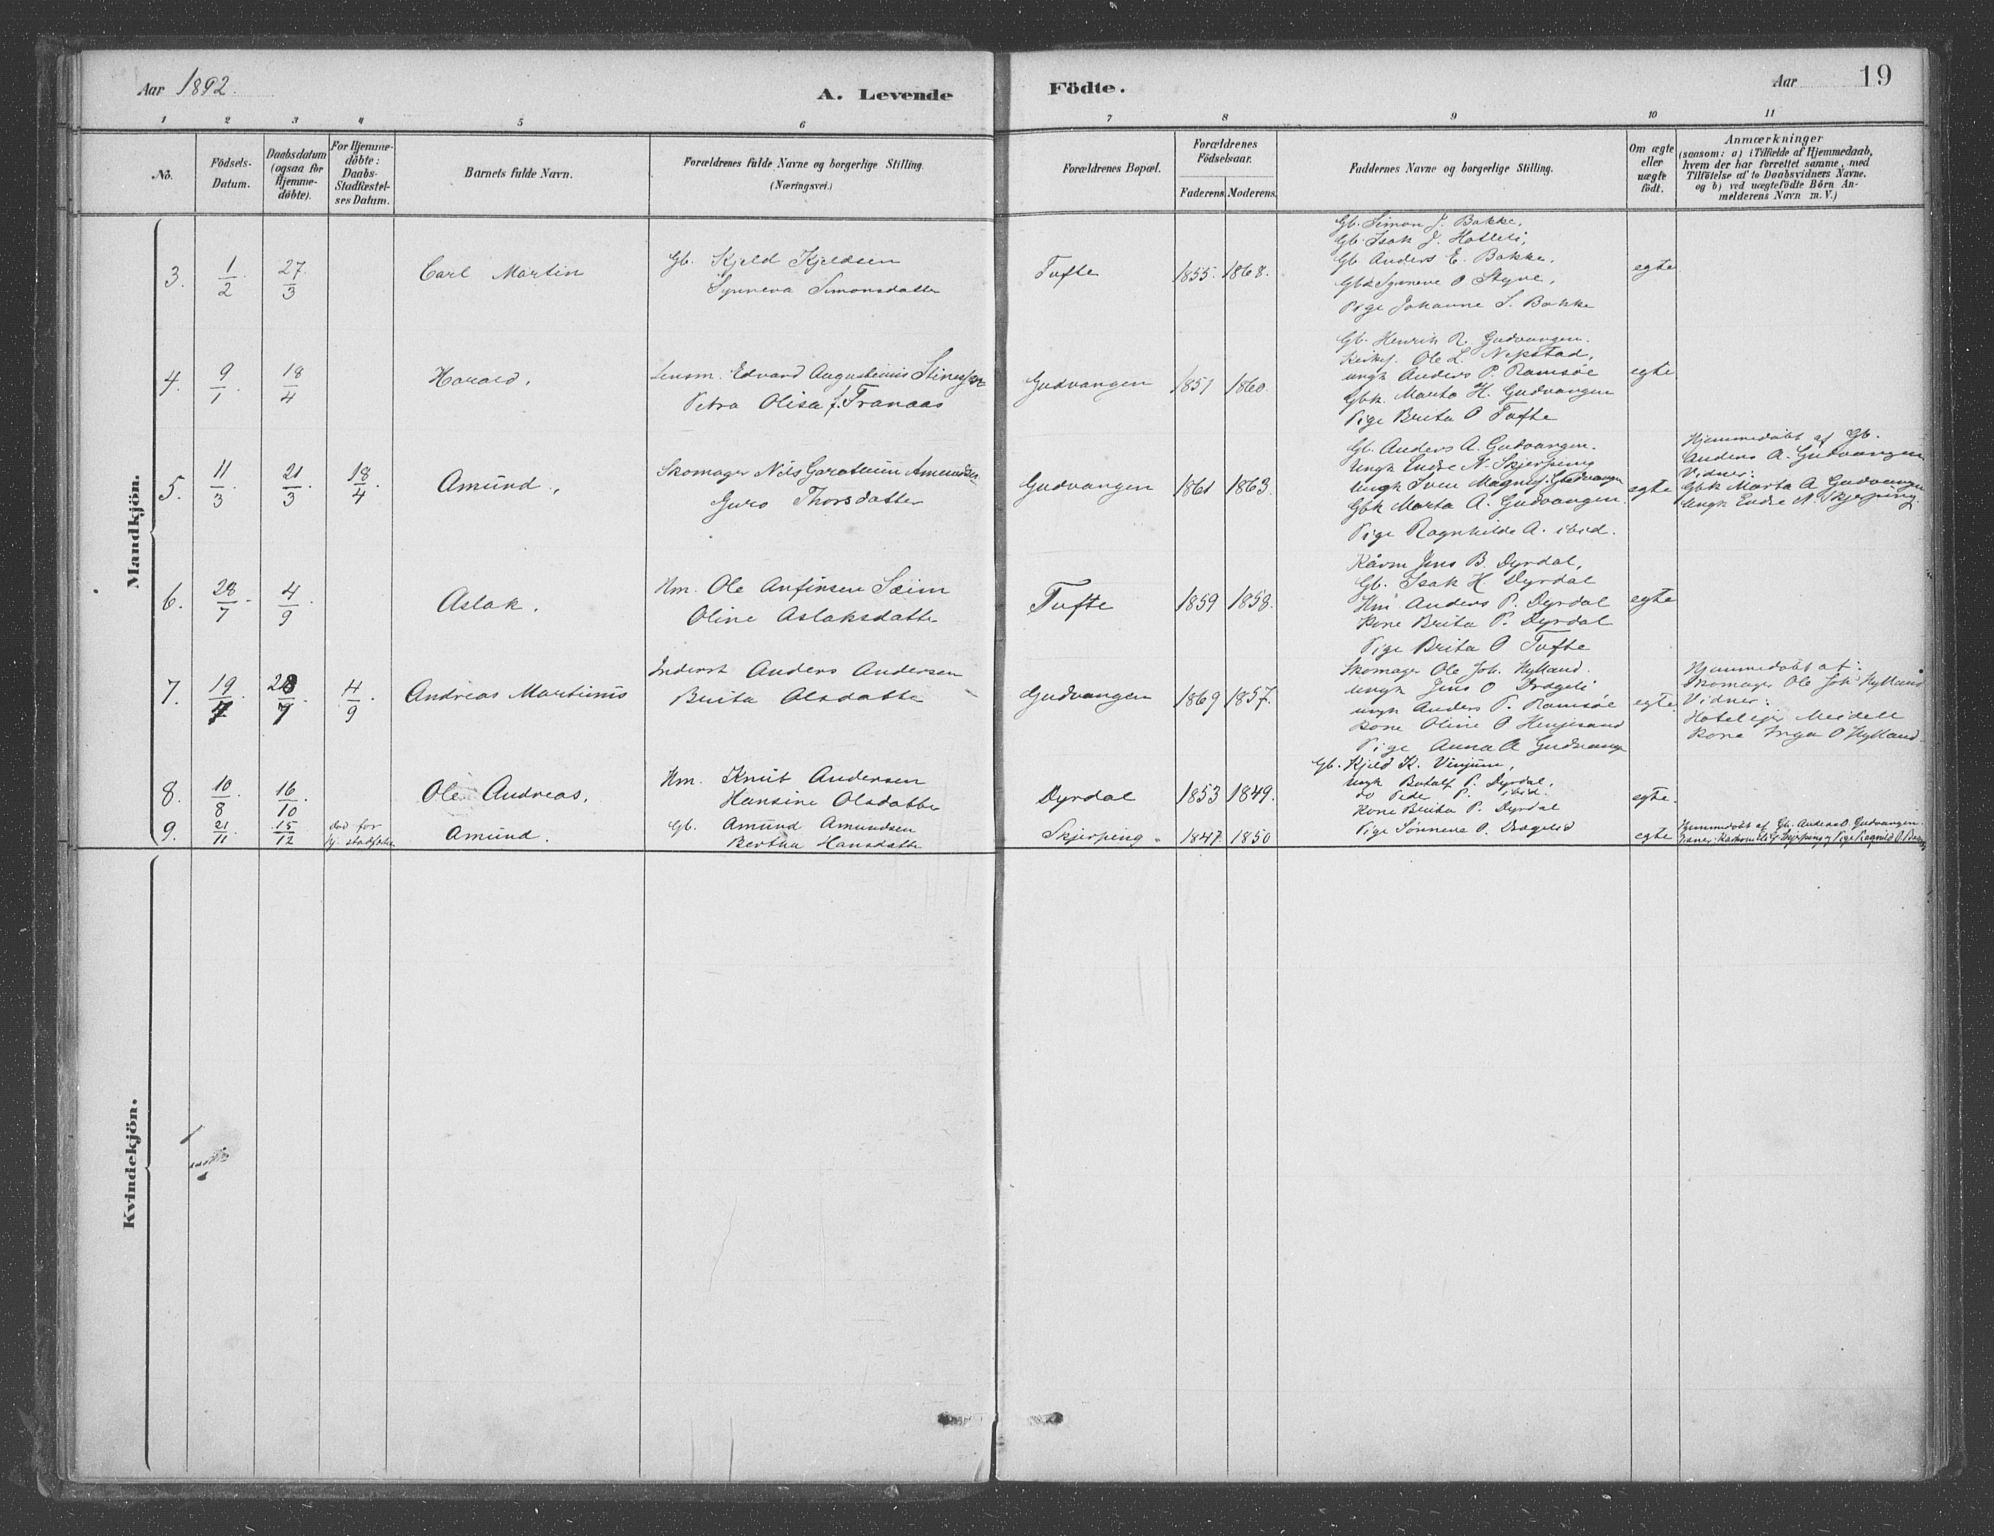 Aar 1892.
A. Levende Födte.
Aar
19
1 2 3 4 5 6 7 8 9 10 11
No.
Födsels-
Datum.
Daabsdatum
(ogsaa for
Hjemme-
döbte).
For Hjemme-
döbte:
Daabs-
Stadfæstel-
ses Datum.
Barnets fulde Navn.
Forældrenes fulde Navne og borgerlige Stilling.
(Næringsvei.)
Forældrenes Bopæl.
Forældrenes
Födselsaar.
Faderens. Moderens.
Faddernes Navne og borgerlige Stilling.
Om ægte
eller
uægte
födt.
Anmærkninger
(saasom: a) i Tilfælde af Hjemmedaab,
hvem der har forrettet samme, med
Tilföielse af to Daabsvidners Navne.
og b) ved uægtefödte Börn An-
melderens Navn m. V.)
Mandkjön.
3. 1/2 27/3 Carl Martin
Gb. Kjeld Kjeldsen
Synneva Simonsdatter
Tufte 1855. 1868.
Gb. Simon J. Bakke,
Gb. Isak J. Hatleli,
Gb. Anders E. Bakke,
Gbk Synneve O Styve,
Pige Johanne S. Bakke
egte
4. 9/1 18/4 Harald,
Lensm. Edvard Augustinius Stinessen
Petra Olisa f. Tranaas
Gudvangen 1851 1860.
Gb. Henrik R. Gudvangen.
Ole L. Nekstad,
ungk Anders P. Ramsöe
Gbk. Marta H. Gudvangen
Pige Brita O Tufte
egte
5. 11/3 21/3 18/4 Amund,
Skomager Nils Amundsen
Guro Thorsdatter
Gudvangen 1861 1863.
Gb. Anders A. Gudvangen.
Ungk Endre N. Skjerping
Ungk Sven Gudvangen
Gbk Marta A. Gudvangen
Pige Ragnhilde A. ibid.
egte
Hjemmedöbt af Gb.
Anders A. Gudvangen
Vidner:
Gbk Marta A Gudvangen
Ungk Endre N. Skjerping
6. 28/7 4/9 Aslak.
Hm. Ole Anfinsen Sæim
Oline Aslaksdatter
Tufte 1859 1858.
Jens B. Dyrdal,
Gb. Isak H. Dyrdal
Hm. Anders P. Dyrdal
Kone Brita P. Dyrdal
Pige Brita O Tufte
egte
7. 19/7 28/7 4/9 Andreas Martinus
Inderst Anders Andersen
Brita Olsdatter
Gudvangen 1869 1857.
Skomager Ole Joh. Hylland.
Ungk Jens O Drægeli
ungk Anders P. Ramsöe
Kone Oline O
Pige Anna A Gudvangen
egte
Hjemmedöbt af:
Skomager Ole Joh Hylland
Vidner:
Hoteleier Meidell
Kone Inga O Hylland.
8. 10/8 16/10 Ole Andreas.
Hm. Knut Andersen
Hansine Olsdatter
Dyrdal 1853 1849.
Gb. Kjeld K. Vinjum,
Ungk Botolf P. Dyrdal,
do Peder P. ibid.
Kone Brita P. Dyrdal
Pige Sønneve O. Drægelid
egte.
9. 21/11 15/12 död for
Amund.
Gb. Amund Amundsen
Bertha Hansdatter
Skjerping 1847. 1850
egte
Hjemmedöbt af Gb. Anders O. Gudvangen.
Kvindekjön.